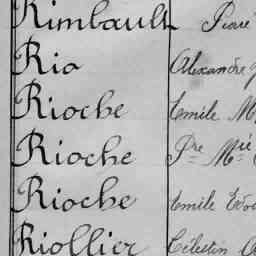 Rimbault Pierre
Rio Alexandre
Rioche Emile M
Rioche Pre Mie
Rioche Emile
Riollier Célestin